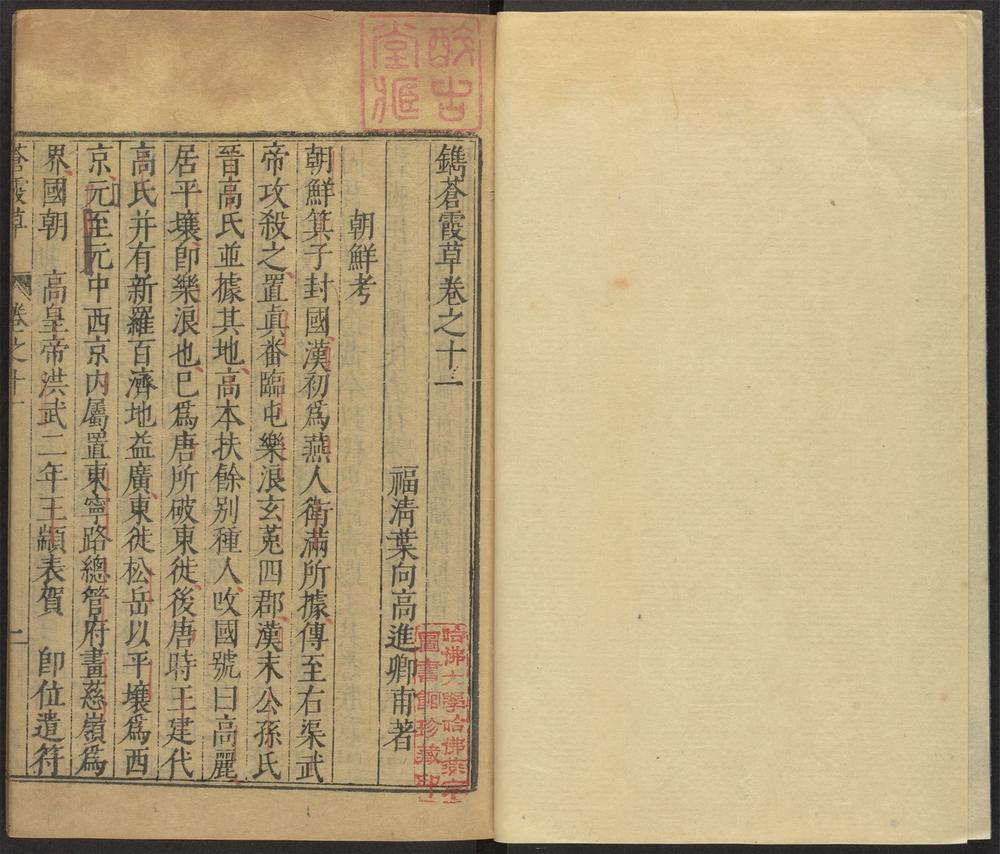 鐫蒼霞草卷之十一
福淸葉向高進卿甫著
朝鮮考
朝鮮箕子封國漢初爲燕人衛滿所據傳至右渠武
帝攻殺之置眞番臨屯樂浪玄菟四郡漢末公孫氏
晉高氏並據其地高本扶餘别種人攺國號曰高麗
居平壤卽樂浪也巳爲唐所破東徙後唐時王建代
高氏并有新羅百濟地益廣東徙松岳以平壤爲西
京元至元中西京内屬置東寧路總管府畫慈嶺爲
界國朝 高皇帝洪武二年王顓表賀 卽位遣符
蒼霞草 卷之十一 一
哈佛大學哈佛燕京
圖書館珍藏印